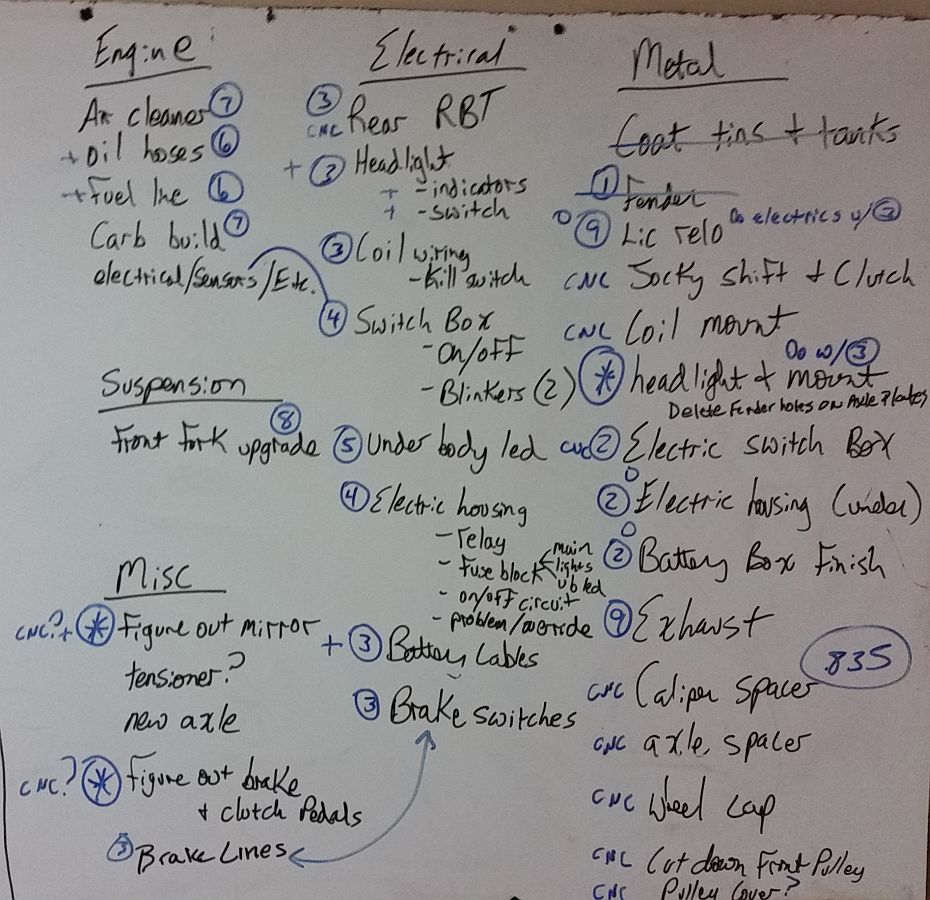 Engine
Air cleaner 7
+ Oil hoses 6
+ Fuel line 6
Carb build 7
electrical/Sensors/Etc.
Suspension
8
Front Fork upgrade
Misc
CNC? + * Figure out mirror
tensioner?
new axle
CNC? * Figure out brake
+ clutch Pedals
3 Brake Lines
Electrical
3 CNC Rear RBT
+ 3 Headlight
+ - indicators
+ - switch
3 Coil wiring
- Kill switch
4 Switch Box
- On/off
- Blinkers (2)
5 Under body led
4 Electric housing
- relay
- Fuse block < main
lights
ub led
- on/off circuit
- problem/override
+ 3 Battery Cables
3 Brake switches
Metal
Coat tins + tanks
1 Fender
0 9 Lic relo Do electrics w/ 3
CNC Jocky shift + Clutch
CNC Coil mount
Do w/ 3
* headlight + mount
Delete Fender holes on Axle Plates
CNC 2 Electric switch Box
0
2 Electric housing (under)
0
2 Battery Box Finish
9 Exhaust
.835
CNC Caliper spacer
CNC axle spacer
CNC Wheel cap
CNC Cut down Front Pulley
CNC Pulley Cover?